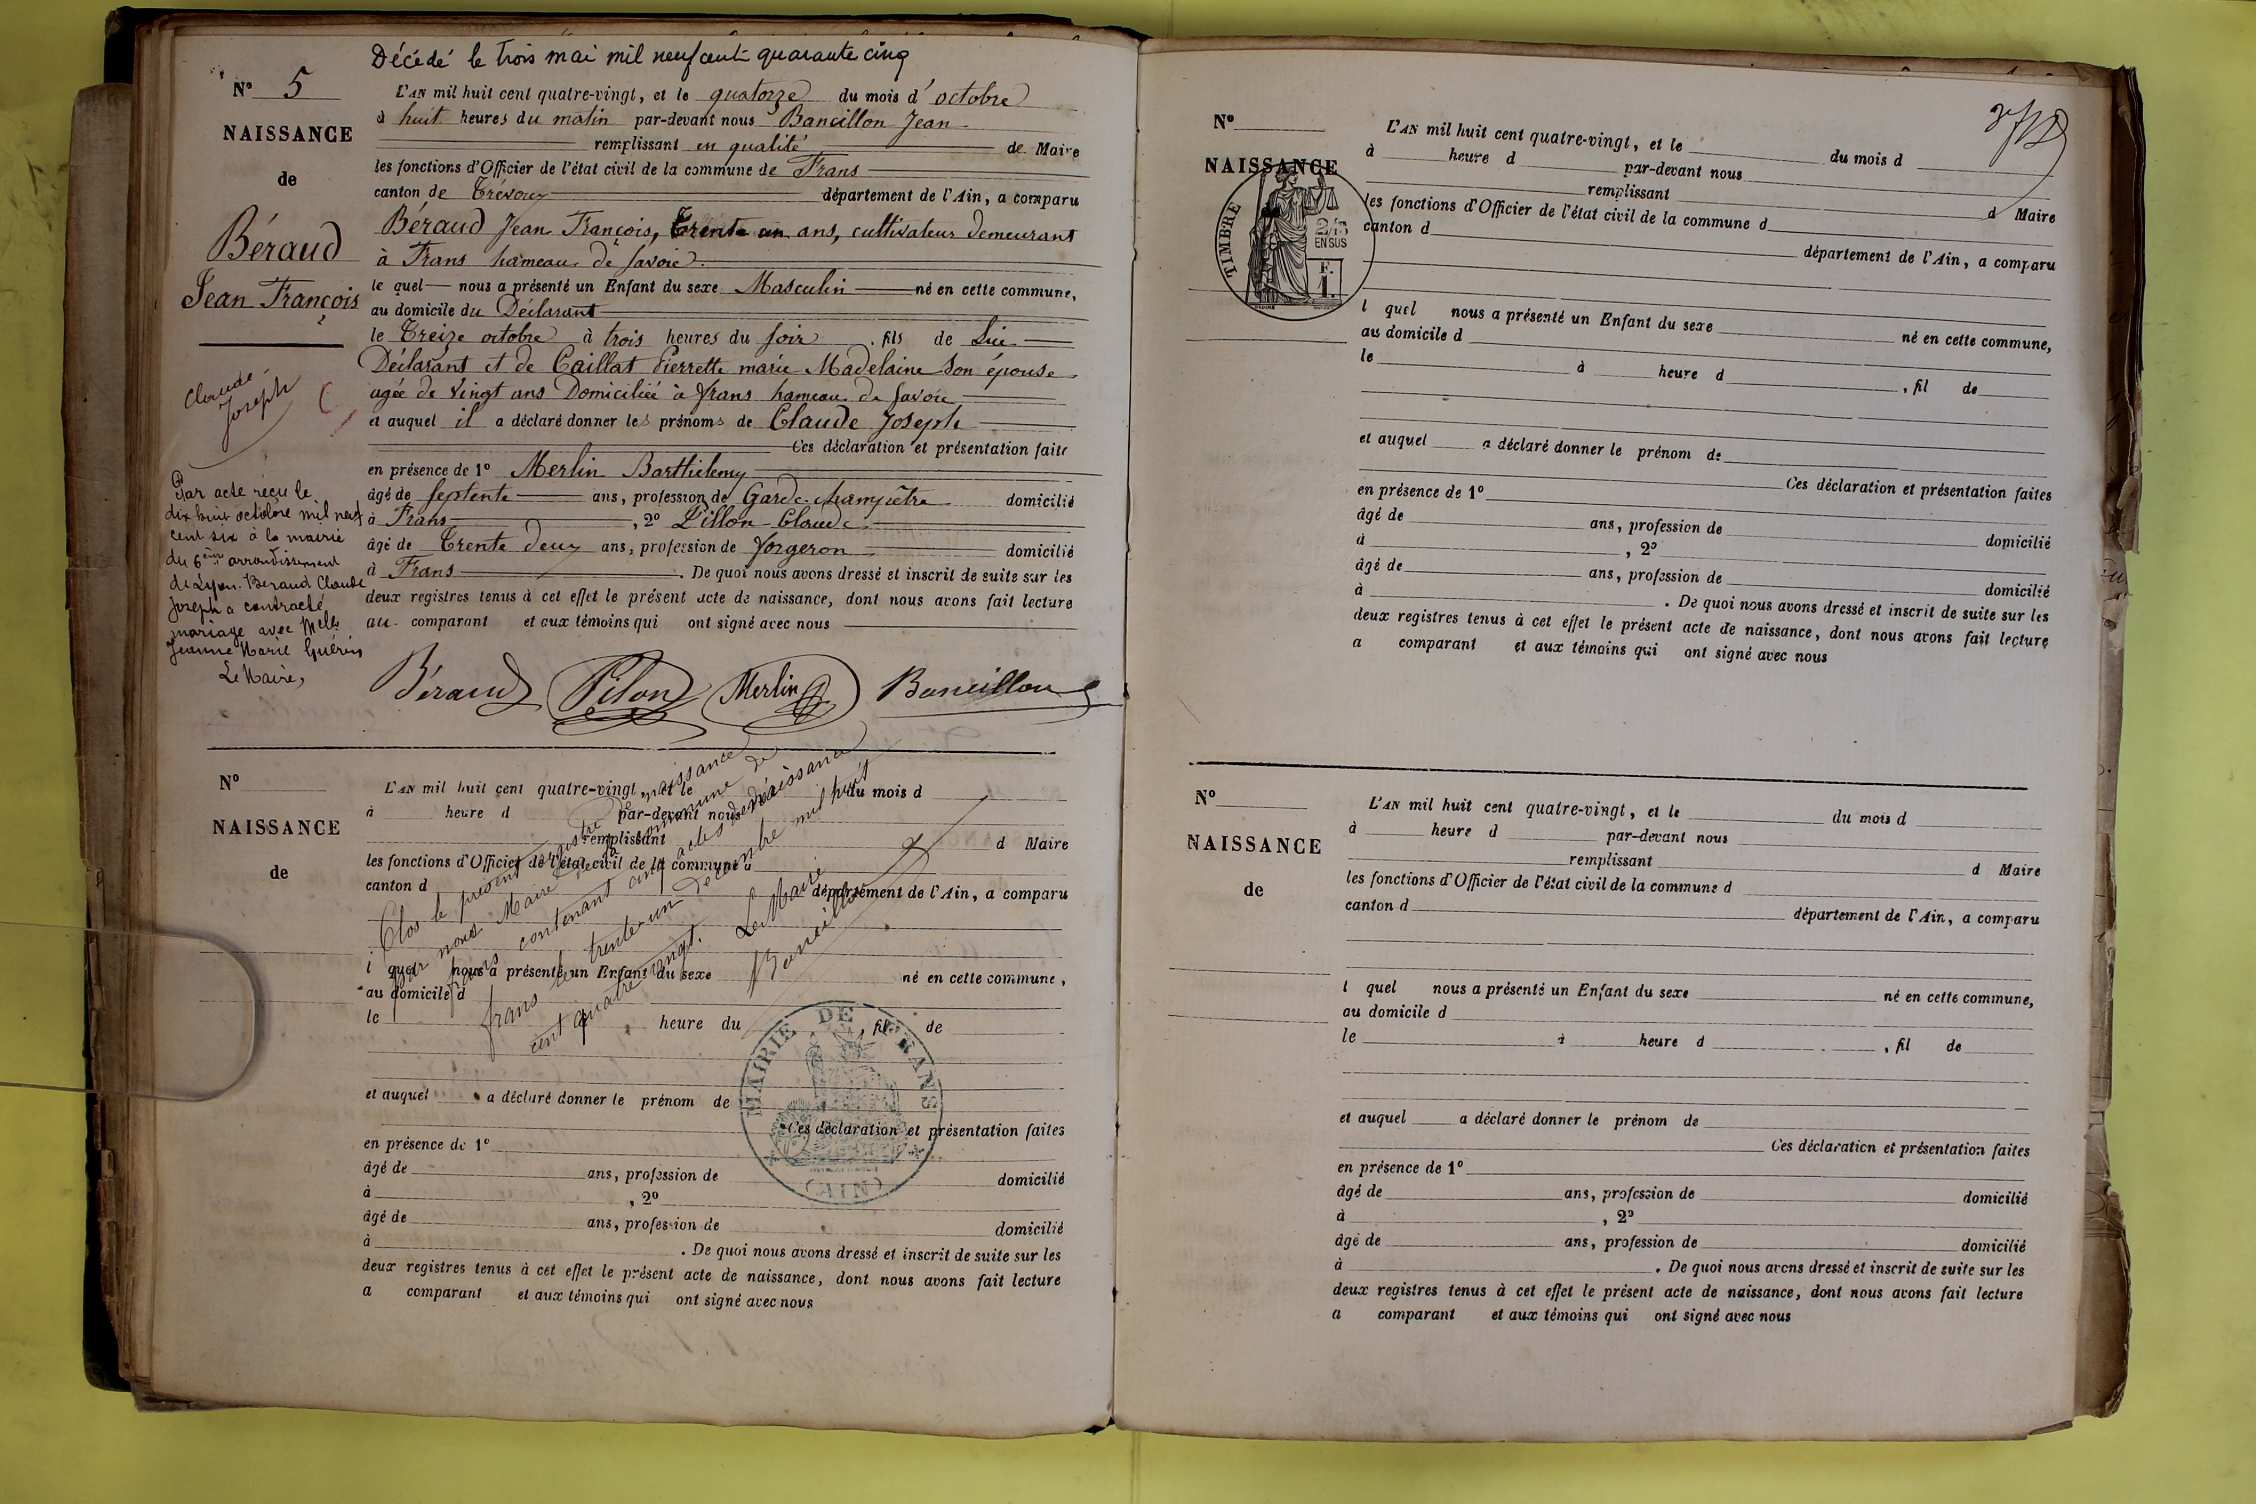 Décédé le trois mai mil neuf cent quarante cinq
N° 5
NAISSANCE
de
Béraud
Jean François
Claude
Joseph
Par acte reçu le
dix huit octobre mil neuf
cent six à la mairie
du 6ème arrondissement
de Lyon. Beraud Claude
Joseph a contracté
mariage avec Melle
Jeanne Marie Guérin
Le Maire,
L'AN mil huit cent quatre-vingt, et le quatorze du mois d'octobre
à huit heures du matin par-devant nous Bancillon Jean
remplissant en qualité de Maire
les fonctions d'Officier de l'état civil de la commune de Frans
canton de Trévoux département de l'Ain, a comparu
Béraud Jean François, Trente un ans, cultivateur demeurant
à Frans hameau de Savoie
le quel nous a présenté un Enfant du sexe Masculin né en cette commune,
au domicile du Déclarant
le Treize octobre à trois heures du soir, fils de Lui
Déclarant et de Caillat Pierrette marie Madelaine Son épouse
agée de vingt ans Domiciliée à frans hameau de Savoie
et auquel il a déclaré donner les prénoms de Claude Joseph
Ces déclaration et présentation faite
en présence de 1° Merlin Barthélemy
âgé de septente ans, profession de Garde-champêtre domicilié
à Frans, 2° Pillon Claude
âgé de Trente deux ans, profession de forgeron domicilié
à Frans. De quoi nous avons dressé et inscrit de suite sur les
deux registres tenus à cet effet le présent acte de naissance, dont nous avons fait lecture
au comparant et aux témoins qui ont signé avec nous
Béraud Pilon Merlin Bancillon
N°
NAISSANCE
de
L'AN mil huit cent quatre-vingt, et le du mois d
à heure d par-devant nous
remplissant d Maire
les fonctions d'Officier de l'état civil de la commune d
canton d département de l'Ain, a comparu
l quel nous a présenté un Enfant du sexe né en cette commune,
au domicile d
le heure du, fil de
et auquel a déclaré donner le prénom de
Ces déclaration et présentation faites
en présence de 1°
âgé de ans, profession de domicilié
à, 2°
âgé de ans, profession de domicilié
à. De quoi nous avons dressé et inscrit de suite sur les
deux registres tenus à cet effet le présent acte de naissance, dont nous avons fait lecture
a comparant et aux témoins qui ont signé avec nous
Clos le présent registre de naissance
par nous Maire de la commune de
frans contenant cinq actes de naissance
frans le trente-un décembre mil huit
cent quatre vingt. Le Maire
Bancillon
MAIRIE DE FRANS
(AIN)
N°
NAISSANCE
TIMBRE
2/10
EN SUS
F.
1.
L'AN mil huit cent quatre-vingt, et le du mois d
à heure d par-devant nous
remplissant d Maire
les fonctions d'Officier de l'état civil de la commune d
canton d département de l'Ain, a comparu
l quel nous a présenté un Enfant du sexe né en cette commune,
au domicile d
le à heure d, fil de
et auquel a déclaré donner le prénom de
Ces déclaration et présentation faites
en présence de 1°
âgé de ans, profession de domicilié
à, 2°
âgé de ans, profession de domicilié
à. De quoi nous avons dressé et inscrit de suite sur les
deux registres tenus à cet effet le présent acte de naissance, dont nous avons fait lecture
a comparant et aux témoins qui ont signé avec nous
N°
NAISSANCE
de
L'AN mil huit cent quatre-vingt, et le du mois d
à heure d par-devant nous
remplissant d Maire
les fonctions d'Officier de l'état civil de la commune d
canton d département de l'Ain, a comparu
l quel nous a présenté un Enfant du sexe né en cette commune,
au domicile d
le à heure d, fil de
et auquel a déclaré donner le prénom de
Ces déclaration et présentation faites
en présence de 1°
âgé de ans, profession de domicilié
à, 2°
âgé de ans, profession de domicilié
à. De quoi nous avons dressé et inscrit de suite sur les
deux registres tenus à cet effet le présent acte de naissance, dont nous avons fait lecture
a comparant et aux témoins qui ont signé avec nous